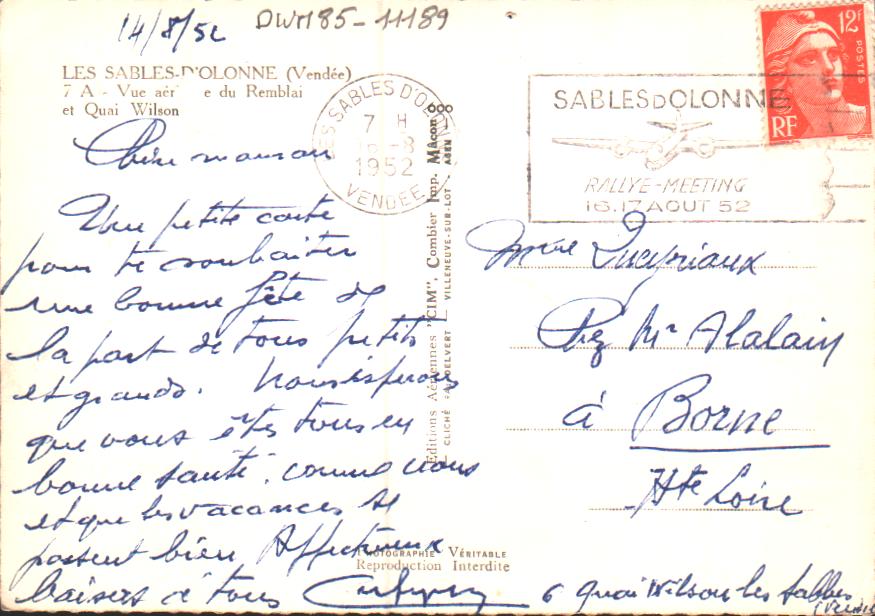 14/8/52 DWM185-11189
LES SABLES-D'OLONNE (Vendée)
7 A - Vue aér e du Remblai
et Quai Wilson
Chère maman
Une petite carte
pour te souhaiter
une bonne fête de
la part de tous petits
et grands. Nous espérons
que vous êtes tous en
bonne santé. comme nous
et que les vacances se
passent bien Affectueux
baisers à tous
6 quai Wilson les Sables
(Vendée
LES SABLES D'OLONNE
7 H
16-8
1952
VENDÉE
SABLES D OLONNE
RALLYE-MEETING
16.17 AOUT 52
12F
POSTES
RF
Editions Aériennes "CIM", Combier Imp. Mâcon
CLICHÉ VILLENEUVE-SUR-LOT - AGEN
PHOTOGRAPHIE VÉRITABLE
Reproduction Interdite
Mme
Chez Mr Alalain
à Borne
Hte Loire